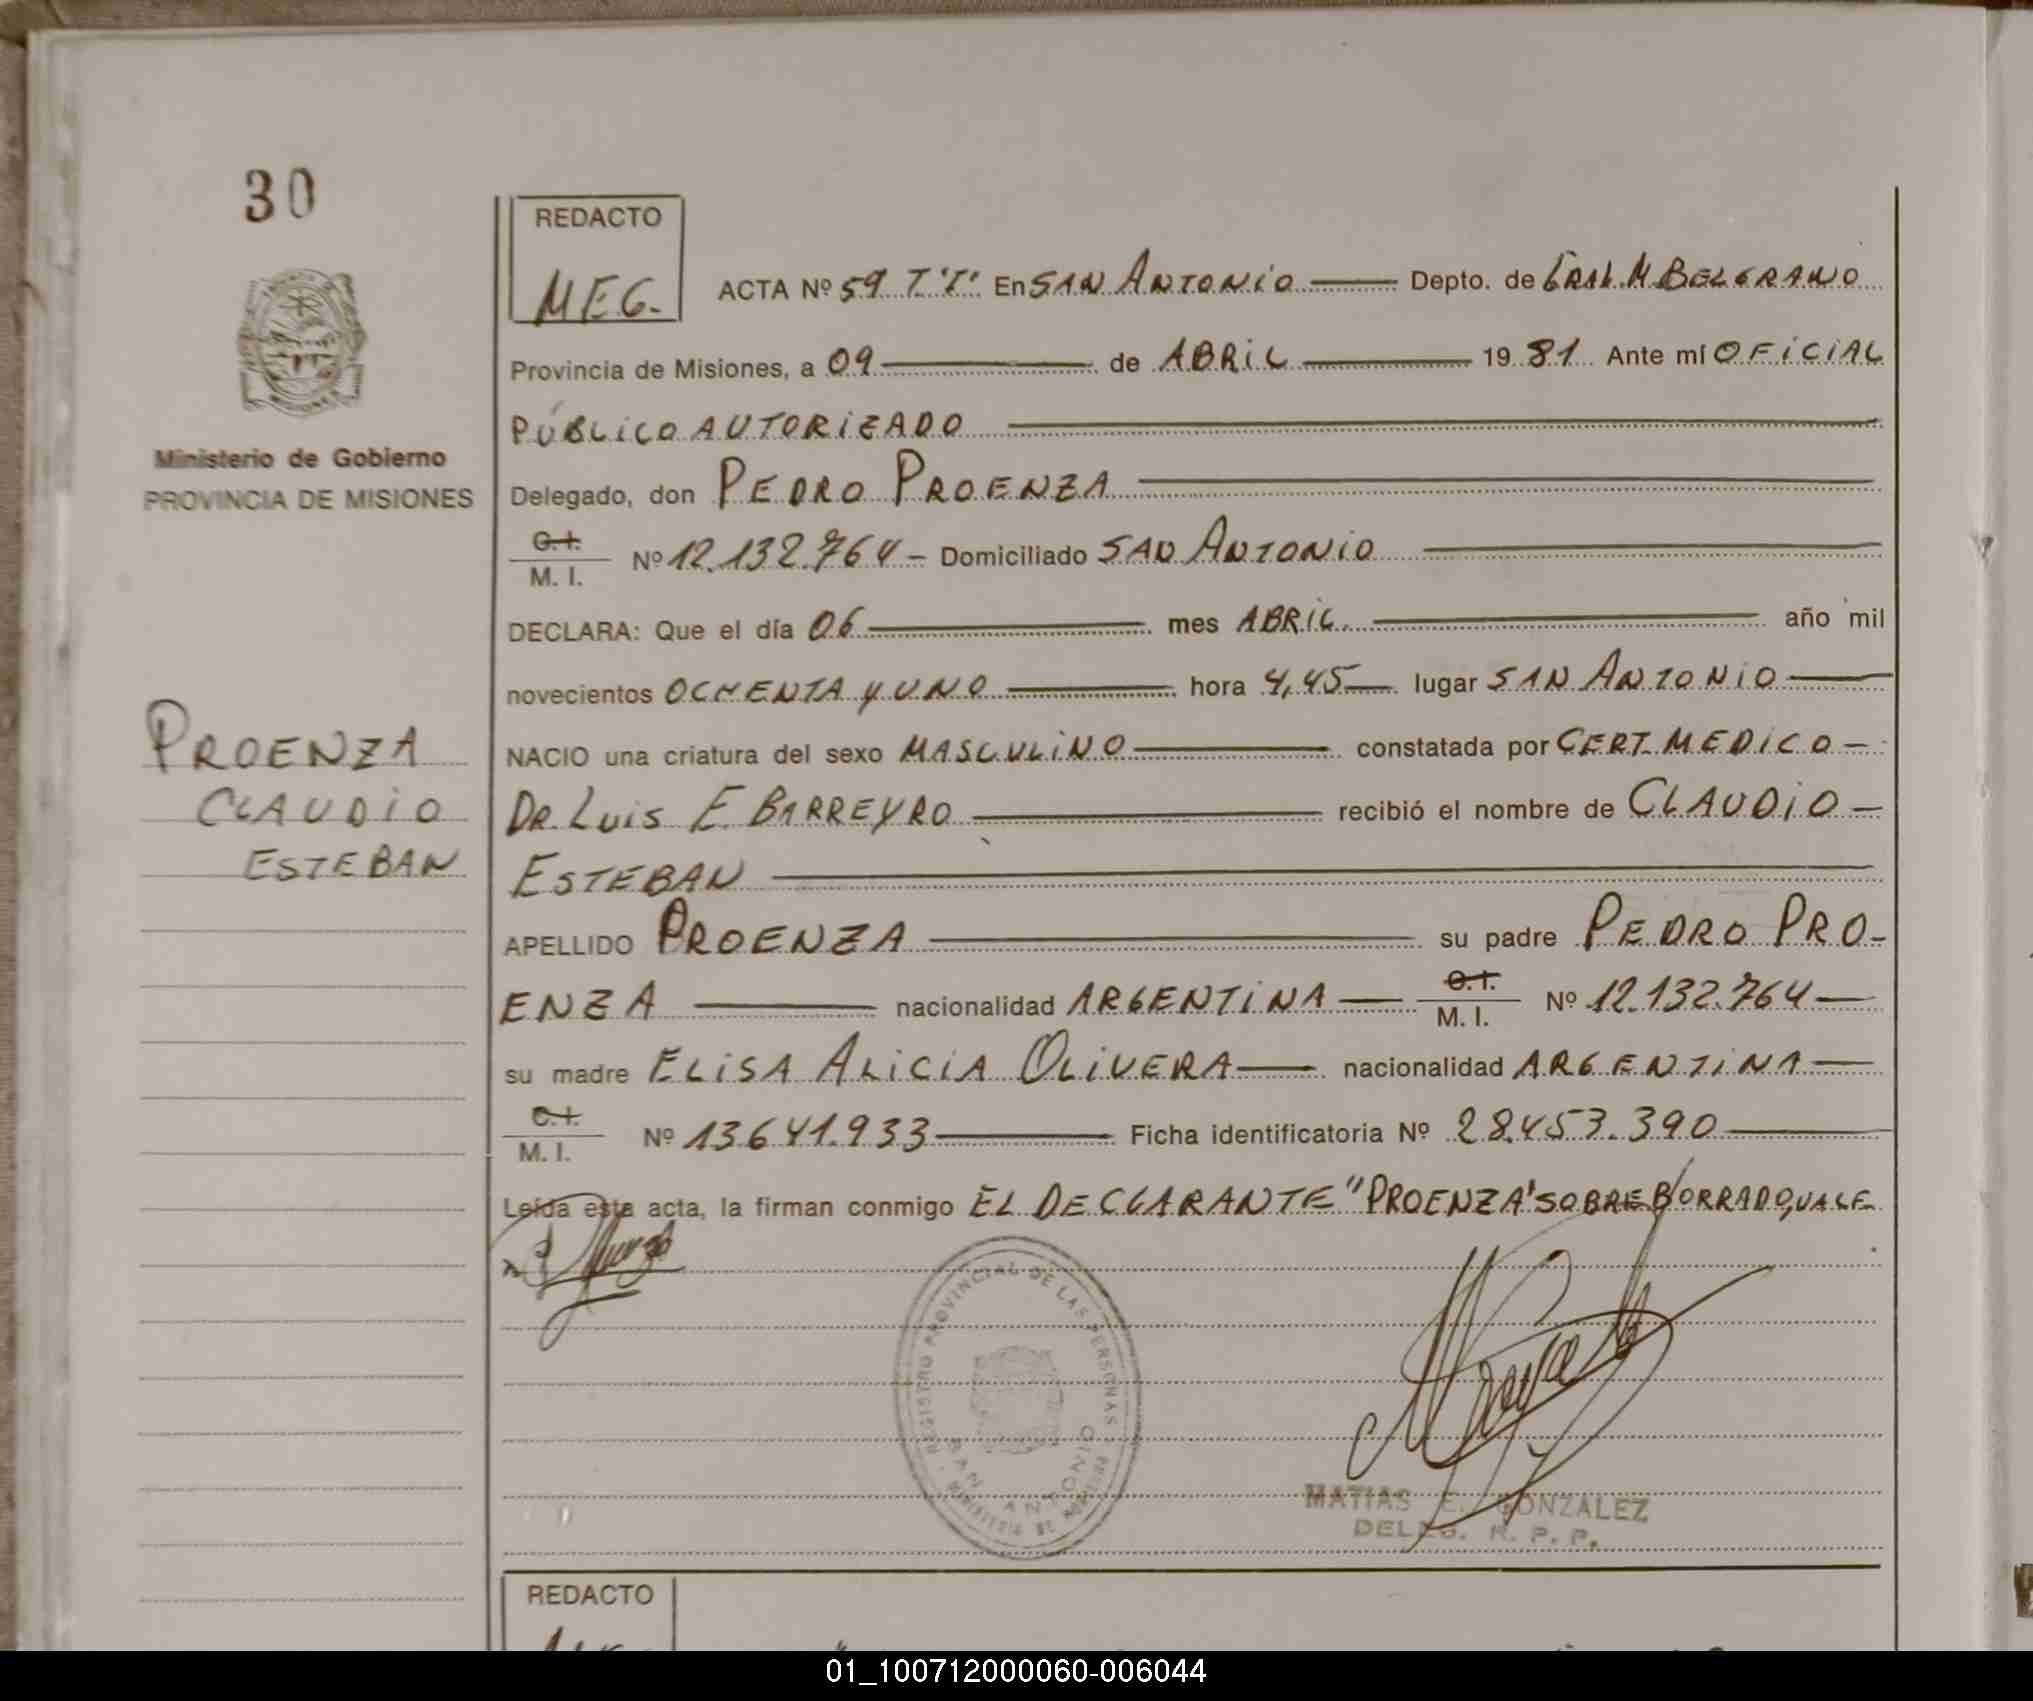 30
REDACTO
M.E.G.
ACTA Nº 59 T."I" En SAN ANTONIO Depto. de GRAL. M. BELGRANO
Provincia de Misiones, a 09 de ABRIL 1981 Ante mí OFICIAL
PÚBLICO AUTORIZADO
Ministerio de Gobierno
PROVINCIA DE MISIONES
Delegado, don PEDRO PROENZA
C.I.
M. I. Nº 12.132.764 - Domiciliado SAN ANTONIO
DECLARA: Que el día 06 mes ABRIL año mil
novecientos OCHENTA y UNO hora 4,45 lugar SAN ANTONIO
PROENZA
CLAUDIO
ESTEBAN
NACIO una criatura del sexo MASCULINO constatada por CERT. MEDICO -
DR. LUIS E. BARREYRO recibió el nombre de CLAUDIO -
ESTEBAN
APELLIDO PROENZA su padre PEDRO PRO-
ENZA nacionalidad ARGENTINA C.I. M. I. Nº 12.132.764
su madre ELISA ALICIA OLIVERA nacionalidad ARGENTINA
C.I.
M. I. Nº 13.641.933 Ficha identificatoria Nº 28.453.390
Leída esta acta, la firman conmigo EL DECLARANTE "PROENZA" SOBRE BORRADO, VALE
REGISTRO PROVINCIAL DE LAS PERSONAS
SAN ANTONIO
MATIAS E. GONZALEZ
DELEG. R. P. P.
REDACTO
01_100712000060-006044